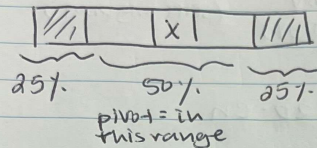 X
25%. 50%. 25%.
pivot = in
this range